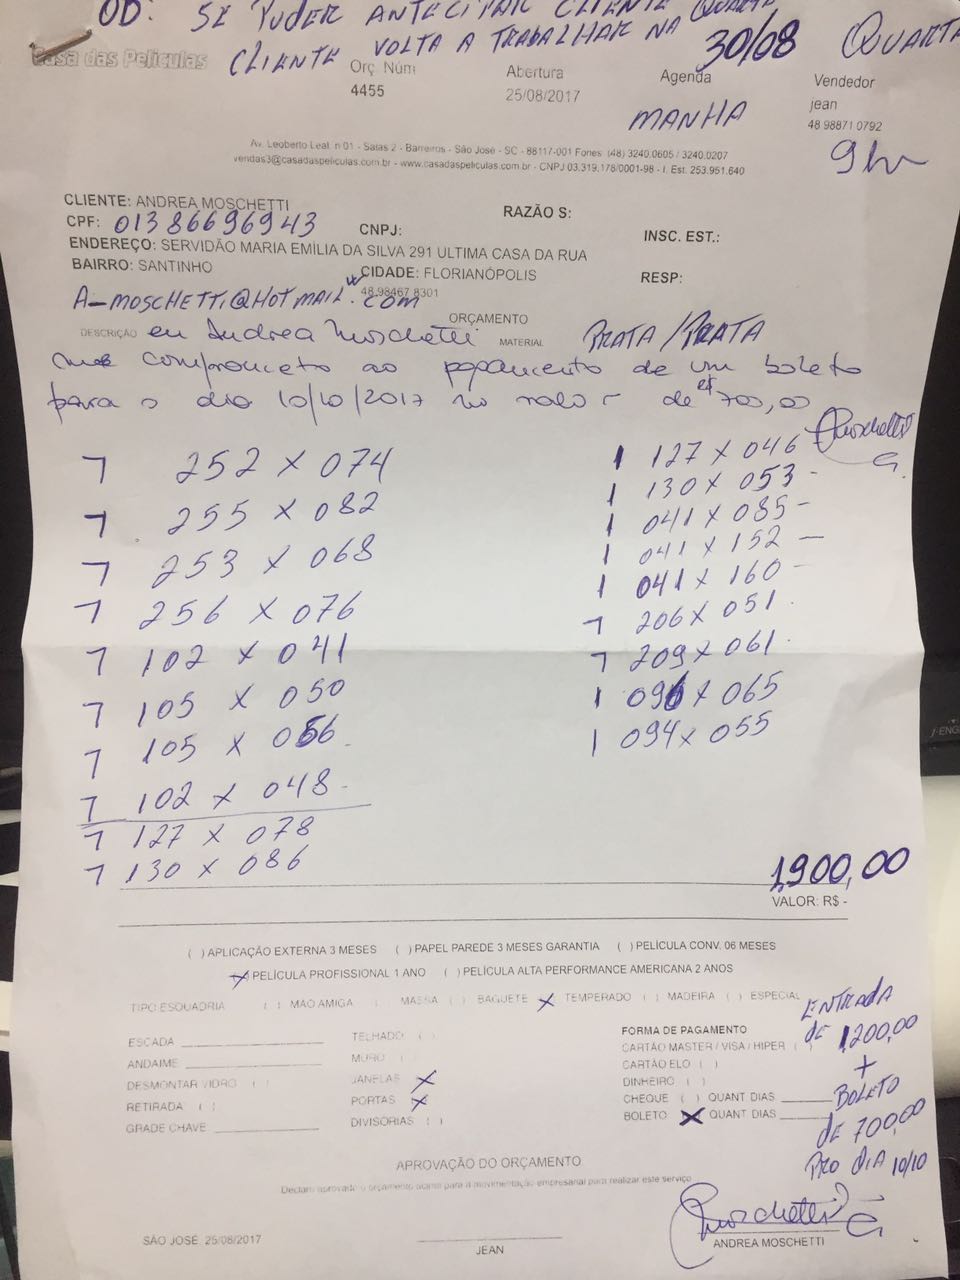 OD: SE PUDER ANTECIPAR CLIENTE QUARTA
CLIENTE VOLTA A TRABALHAR NA 30/08 QUARTA
Casa das Películas
Orç Núm
4455
Abertura
25/08/2017
Agenda
MANHA
Vendedor
jean
48 98871 0792
9hr
Av. Leoberto Leal. n 01 - Salas 2 - Barreiros - São José - SC - 88117-001 Fones (48) 3240.0605 / 3240.0207
vendas3@casadaspeliculas.com.br - www.casadaspeliculas.com.br - CNPJ 03.319.178/0001-98 - I. Est. 253.951.640
CLIENTE: ANDREA MOSCHETTI
RAZÃO S:
CPF: 01386696943
CNPJ:
INSC. EST.:
ENDEREÇO: SERVIDÃO MARIA EMÍLIA DA SILVA 291 ULTIMA CASA DA RUA
BAIRRO: SANTINHO
CIDADE: FLORIANÓPOLIS
RESP:
48 98467 8301
A-MOSCHETTI@HOTMAIL.COM
ORÇAMENTO
DESCRIÇÃO eu Andrea Moschetti MATERIAL PRATA/PRATA
me comprometo ao pagamento de um boleto
para o dia 10/10/2017 no valor de R$ 700,00
Moschetti
7 252 x 074
7 255 x 082
7 253 x 068
7 256 x 076
7 102 x 041
7 105 x 050
7 105 x 056
7 102 x 048
7 127 x 078
7 130 x 086
1 127 x 046
1 130 x 053
1 041 x 085
1 041 x 152
1 041 x 160
7 206 x 051
7 209 x 061
1 096 x 065
1 094 x 055
1.900,00
VALOR: R$ -
( ) APLICAÇÃO EXTERNA 3 MESES ( ) PAPEL PAREDE 3 MESES GARANTIA ( ) PELÍCULA CONV. 06 MESES
(X) PELÍCULA PROFISSIONAL 1 ANO ( ) PELÍCULA ALTA PERFORMANCE AMERICANA 2 ANOS
TIPO ESQUADRIA ( ) MÃO AMIGA ( ) MASSA ( ) BAGUETE X TEMPERADO ( ) MADEIRA ( ) ESPECIAL
ESCADA
ANDAIME
DESMONTAR VIDRO ( )
RETIRADA ( )
GRADE CHAVE
TELHADO ( )
MURO ( )
JANELAS X
PORTAS X
DIVISÓRIAS ( )
FORMA DE PAGAMENTO
CARTÃO MASTER / VISA / HIPER ( )
CARTÃO ELO ( )
DINHEIRO ( )
CHEQUE ( ) QUANT DIAS
BOLETO X QUANT DIAS
ENTRADA
DE 1200,00
+
BOLETO
DE 700,00
PRO DIA 10/10
APROVAÇÃO DO ORÇAMENTO
Declaro aprovado o orçamento acima para a movimentação empresarial para realizar este serviço
Moschetti
SÃO JOSÉ. 25/08/2017
JEAN
ANDREA MOSCHETTI